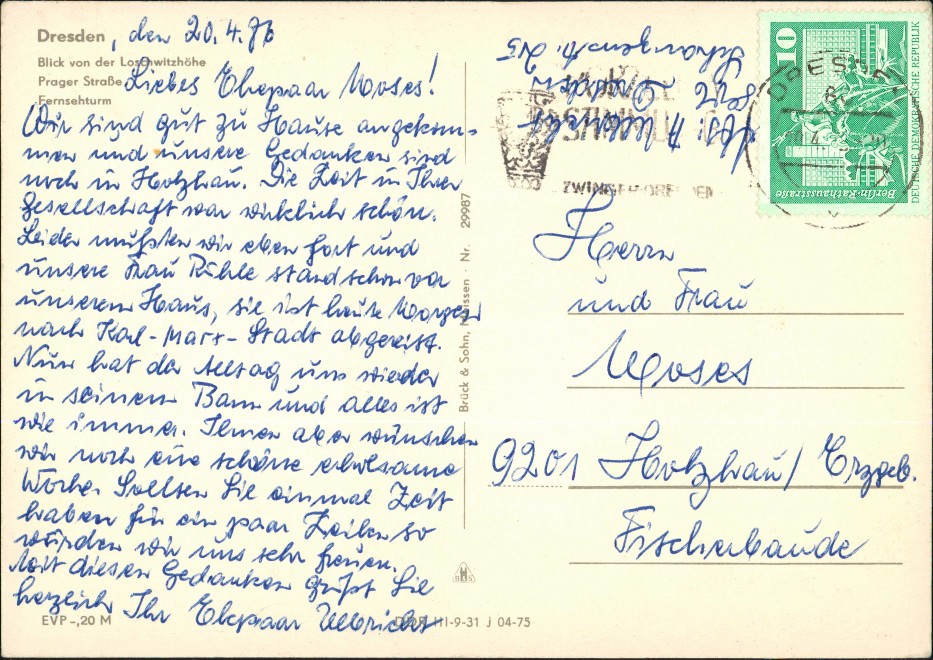 Dresden, den 20.4.76
Blick von der Loschwitzhöhe
Prager Straße
Fernsehturm
Liebes Ehepaar Moses!
Wir sind gut zu Hause angekom-
men und unsere Gedanken sind
noch in Holzhau. Die Zeit in Ihrer
Gesellschaft war wirklich schön.
Leider mußten wir eben fort und
unsere Frau Rühle stand schon vor
unserem Haus, sie ist heute Morgen
nach Karl-Marx-Stadt abgereist.
Nun hat der Alltag uns wieder
in seinem Bann und alles ist
wie immer. Ihnen aber wünschen
wir noch eine schöne erholsame
Woche. Sollten Sie einmal Zeit
haben für ein paar Zeilen so
würden wir uns sehr freuen.
Mit diesen Gedanken grüßt Sie
herzlich Ihr Ehepaar Ulbricht
EVP -,20 M
III-9-31 J 04-75
Brück & Sohn, Meissen · Nr. 29987
B&S
Abs. A. Ulbricht
8212 Dresden
ZWINGER DRESDEN
DRESDEN
10
Berlin-Rathausstraße
DEUTSCHE DEMOKRATISCHE REPUBLIK
Herrn
und Frau
Moses
9201 Holzhau/Erzgeb.
Fischerbaude